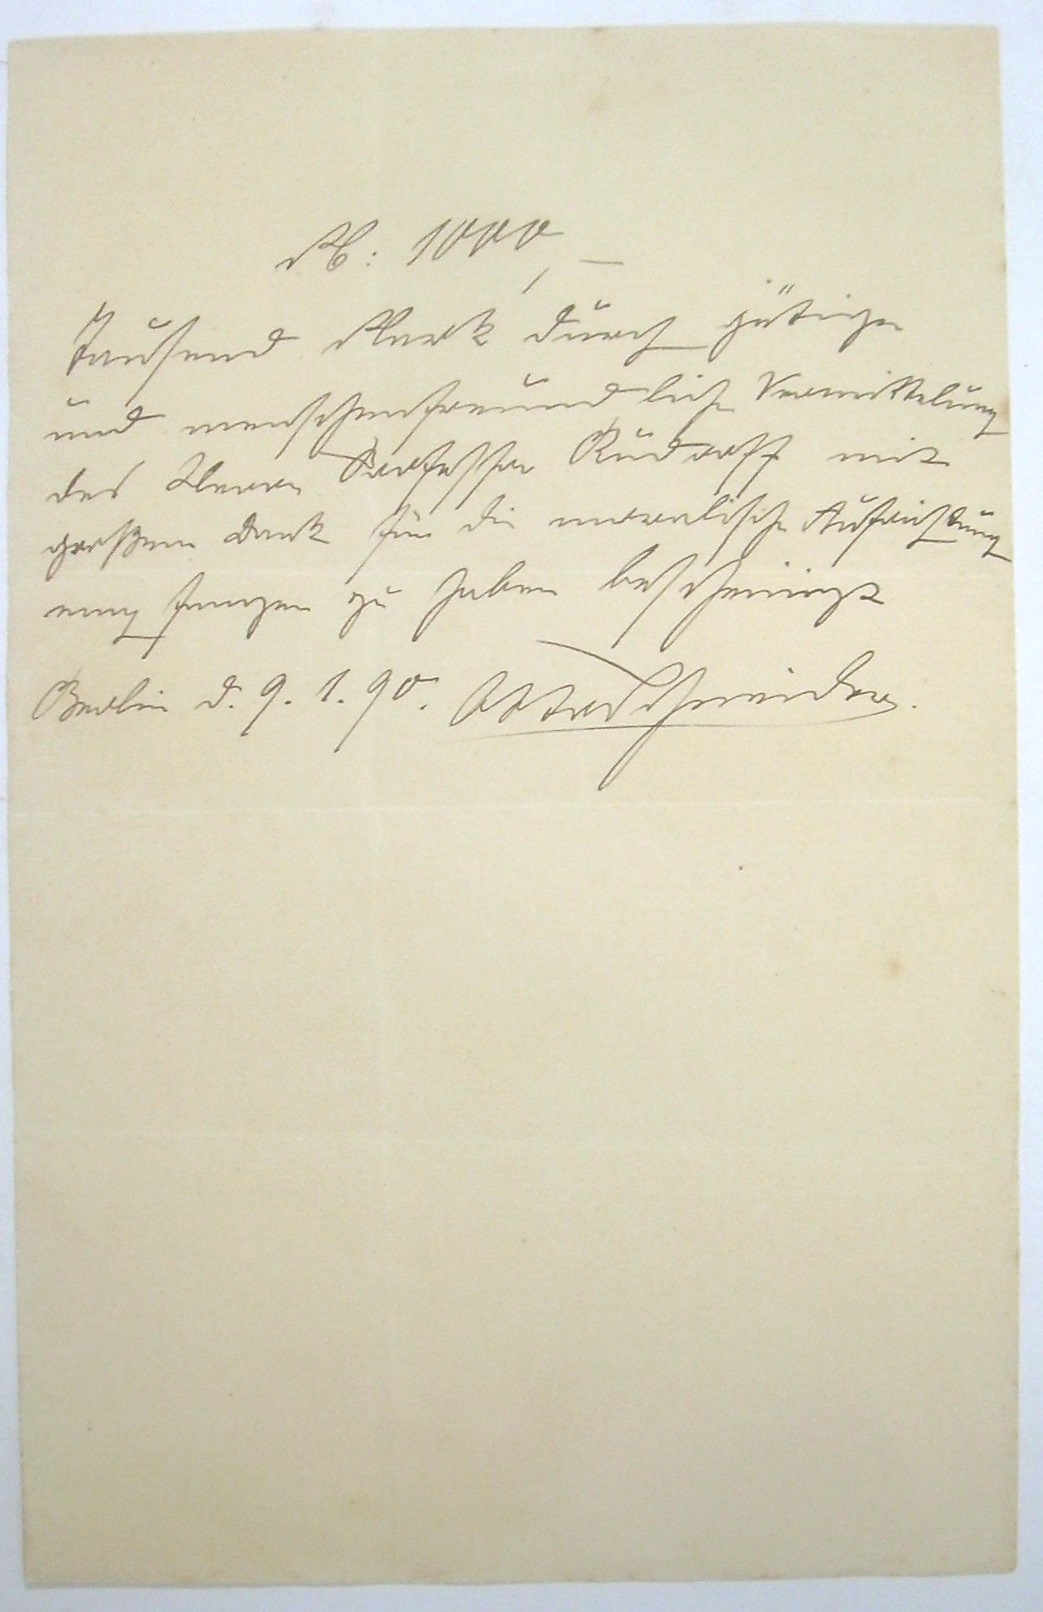 M: 1000,—
Tausend Mark durch gütige
und menschenfreundliche Vermittelung
des Herrn Professor Rudorff mit
großem Dank für die moralische Aufrichtung
empfangen zu haben bescheinigt
Berlin d. 9. 1. 90. Schneider.